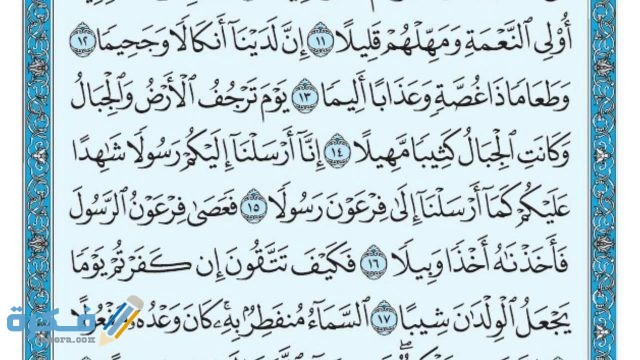 أُوْلِي ٱلنَّعۡمَةِ وَمَهِّلۡهُمۡ قَلِيلًا ١١ إِنَّ لَدَيۡنَآ أَنكَالٗا وَجَحِيمٗا ١٢
وَطَعَامٗا ذَا غُصَّةٖ وَعَذَابًا أَلِيمٗا ١٣ يَوۡمَ تَرۡجُفُ ٱلۡأَرۡضُ وَٱلۡجِبَالُ
وَكَانَتِ ٱلۡجِبَالُ كَثِيبٗا مَّهِيلًا ١٤ إِنَّآ أَرۡسَلۡنَآ إِلَيۡكُمۡ رَسُولٗا شَٰهِدًا
عَلَيۡكُمۡ كَمَآ أَرۡسَلۡنَآ إِلَىٰ فِرۡعَوۡنَ رَسُولٗا ١٥ فَعَصَىٰ فِرۡعَوۡنُ ٱلرَّسُولَ
فَأَخَذۡنَٰهُ أَخۡذٗا وَبِيلٗا ١٦ فَكَيۡفَ تَتَّقُونَ إِن كَفَرۡتُمۡ يَوۡمٗا
يَجۡعَلُ ٱلۡوِلۡدَٰنَ شِيبًا ١٧ ٱلسَّمَآءُ مُنفَطِرُۢ بِهِۦۚ كَانَ وَعۡدُهُۥ مَفۡعُولًا
فكرة